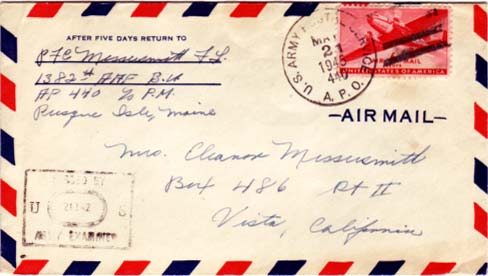 AFTER FIVE DAYS RETURN TO
PFC Messersmith F.L.
1382nd AAF B.U.
AP 440 % P.M.
Presque Isle, Maine
U.S. ARMY POSTAL
MAY
21
1945
440
A.P.O.
AIR MAIL
UNITED STATES OF AMERICA
—AIR MAIL—
Mrs. Eleanor Messersmith
Box 486 Rt II
Vista, California
PASSED BY
U S
ARMY EXAMINER